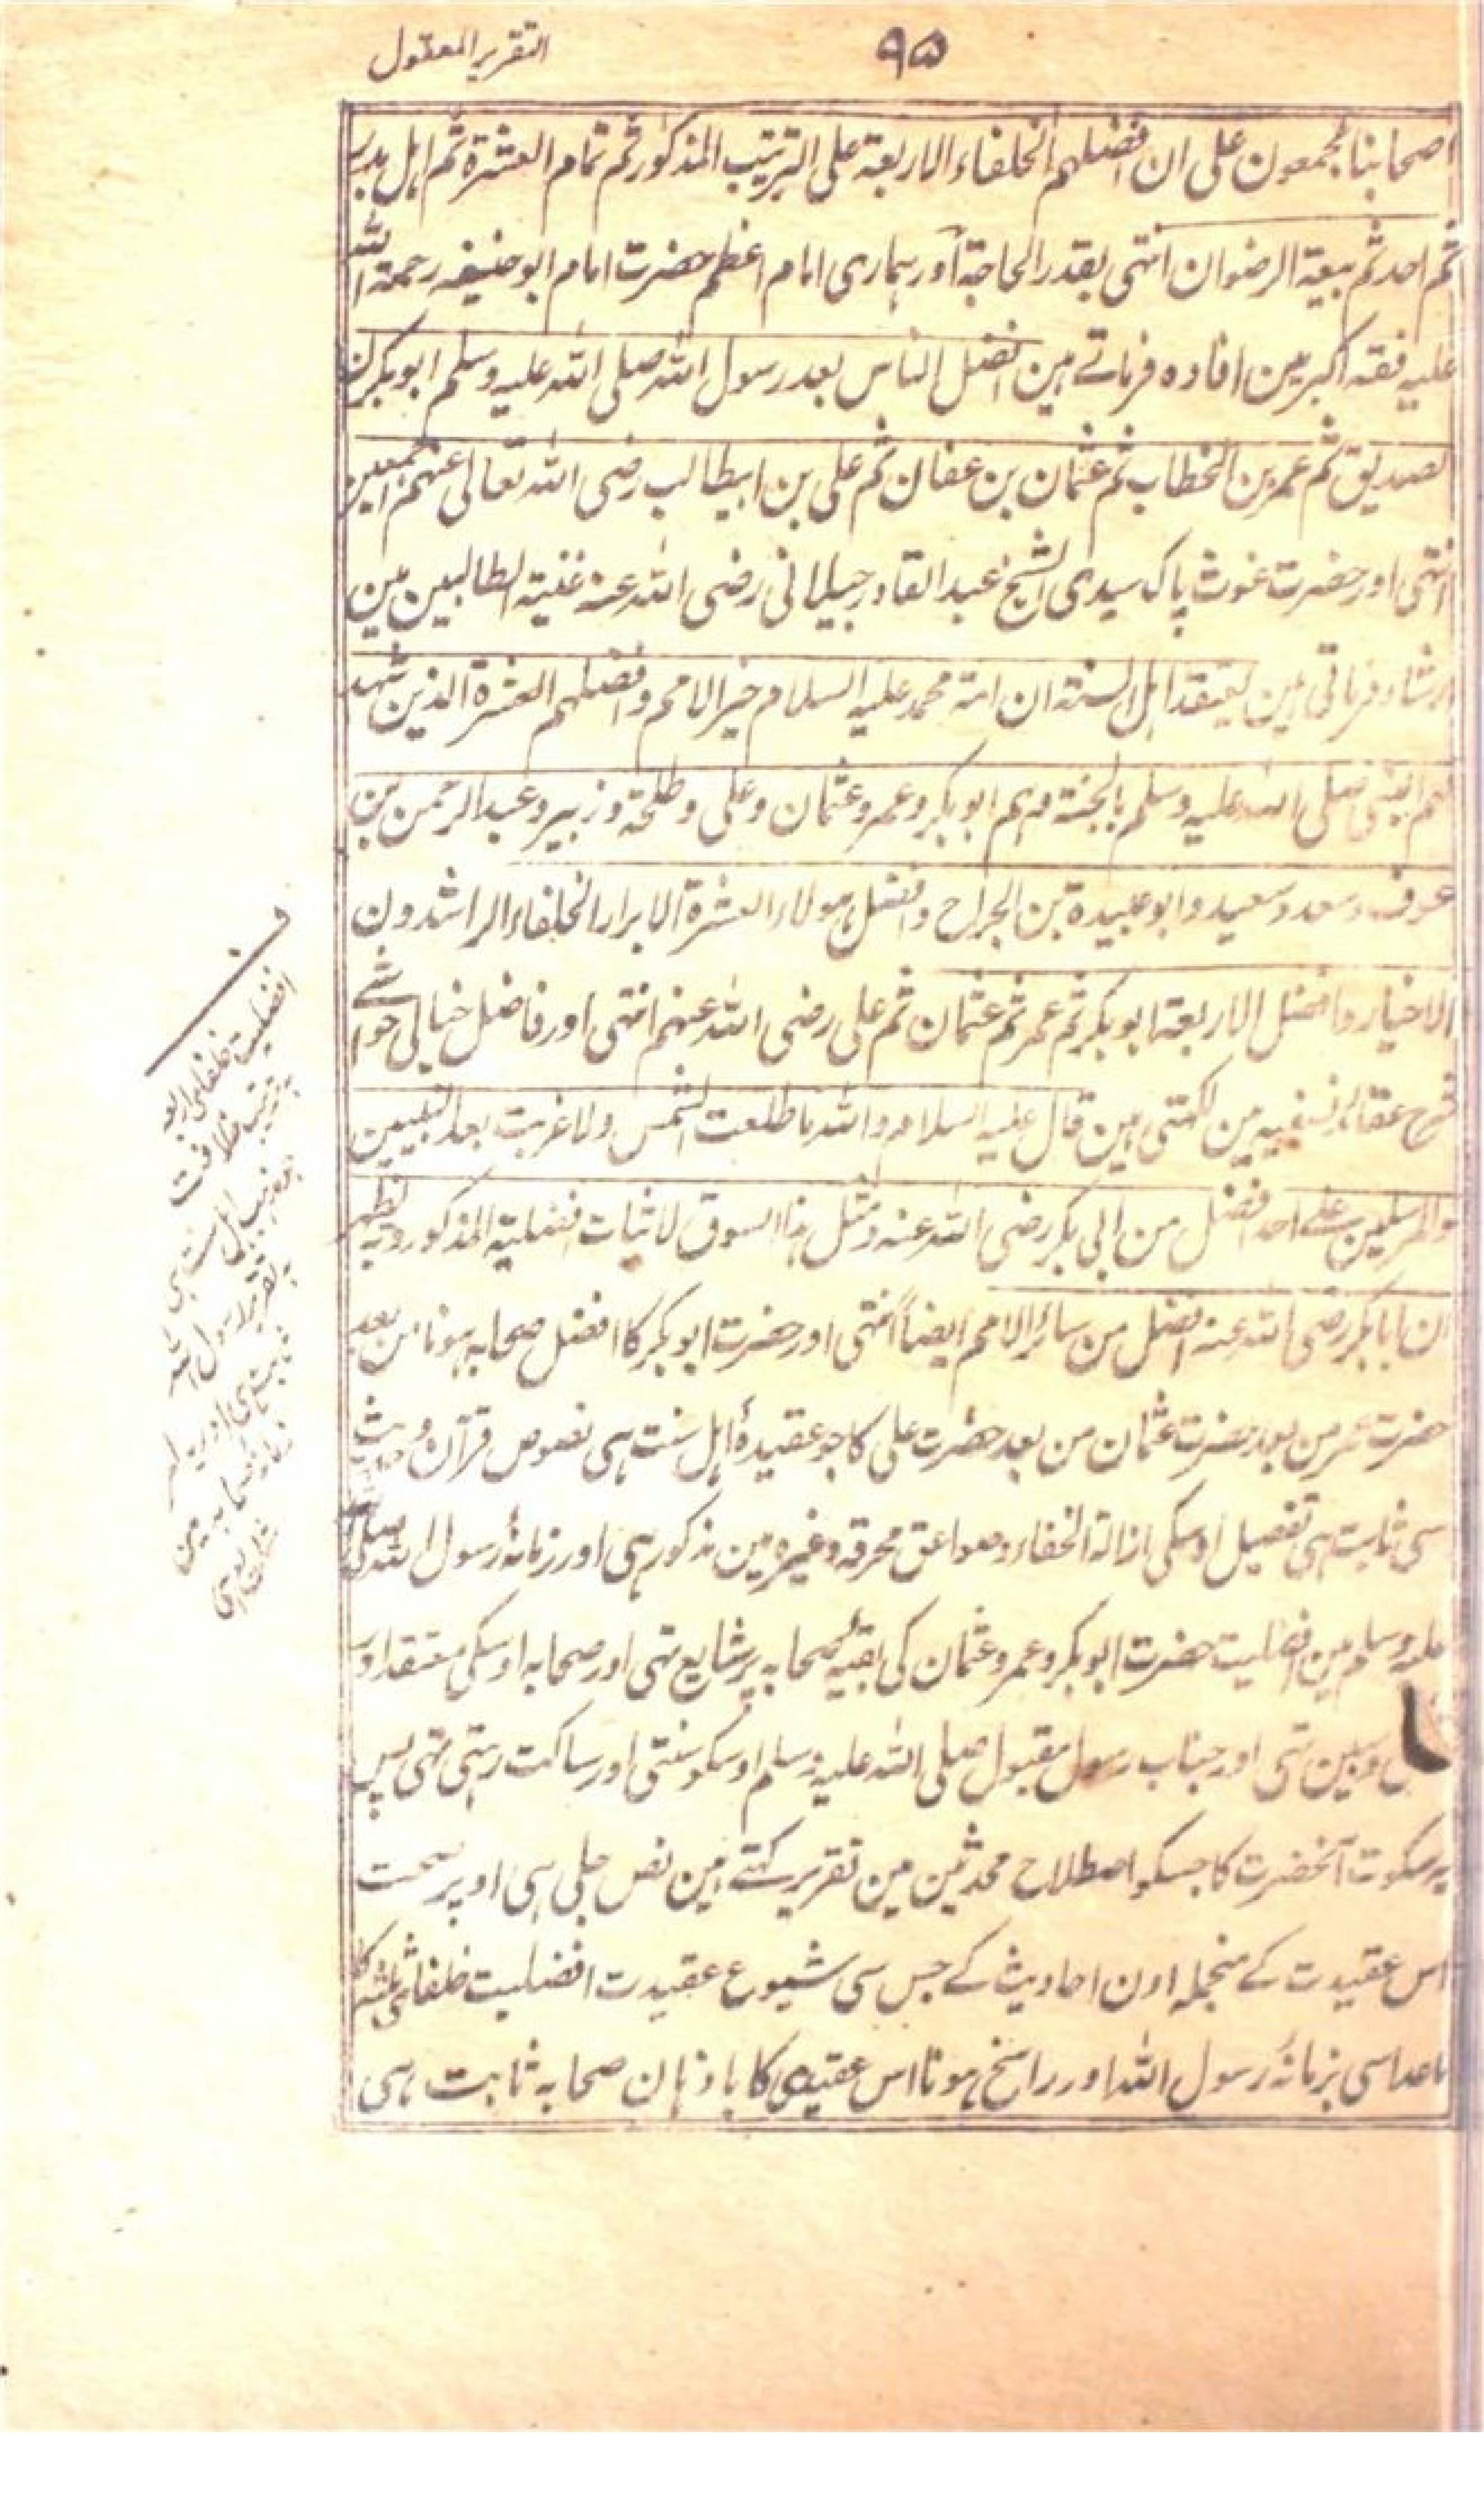 ۹۵
التقریر المعقول
اصحابنا مجمعون علی ان افضلهم الخلفاء الاربعة علی الترتیب المذکور ثم تمام العشرة ثم اہل بدر
ثم احد ثم بیعة الرضوان انتہی بقدر الحاجة اور ہماری امام اعظم حضرت امام ابو حنیفه رحمة الله
علیہ فقہ اکبر مین افادہ فرماتے ہین افضل الناس بعد رسول اللہ صلی اللہ علیہ وسلم ابو بکرن
لصدیق ثم عمر بن الخطاب ثم عثمان بن عفان ثم علی بن ابیطالب رضی اللہ تعالی عنهم اجمعین
انتہی اور حضرت غوث پاک سیدی الشیخ عبد القادر جیلانی رضی اللہ عنہ غنیة الطالبین مین
ارشاد فرماتی ہین یعتقد اہل السنة ان امة محمد علیہ السلام خیر الامم وافضلهم العشرة الذین شهد
لہم النبی صلی اللہ علیہ وسلم بالجنة وہم ابو بکر وعمر وعثمان وعلی وطلحة وزبیر وعبد الرحمن بن
عوف وسعد وسعید وابو عبیدة بن الجراح وافضل ہولاء العشرة الابرار الخلفاء الراشدون
الاخیار وافضل الاربعة ابو بکر ثم عمر ثم عثمان ثم علی رضی اللہ عنہم انتہی اور فاضل خیالی حواشے
شرح عقائد نسفیہ مین لکہتی ہین قال علیہ السلام واللہ ما طلعت الشمس ولا غربت بعد النبیین
والمرسلین علے احد افضل من ابی بکر رضی اللہ عنہ ومثل ہذا السوق لاثبات افضلیة المذکور وبہ یظہر
ان ابا بکر رضی اللہ عنہ افضل من سائر الامم ایضاً انتہی اور حضرت ابو بکر کا افضل صحابہ ہونا من بعد
حضرت عمر من بعد حضرت عثمان من بعد حضرت علی کا جو عقیدۂ اہل سنت ہی نصوص قرآن و حدیث
سی ثابت ہی تفصیل اوسکی ازالة الخفاء وصواعق محرقہ وغیرہ مین مذکور ہی اور زمانۂ رسول اللہ صلی اللہ
علیہ وسلم مین افضلیت حضرت ابو بکر وعمر وعثمان کی بقیہ صحابہ پر شایع تہی اور صحابہ اوسکی معتقد اور
ومبین تہی اور جناب رسول مقبول صلی اللہ علیہ وسلم اوسکو سنتی اور ساکت رہتی تہی پس
یہ سکوت آنحضرت کا جسکو اصطلاح محدثین مین تقریر کہتے ہین نص جلی ہی اوپر صحت
اس عقیدت کے منجملہ اون احادیث کے جس سی شیوع عقیدت افضلیت خلفائی ثلثہ کا
ماعدا سی بزمانۂ رسول اللہ اور راسخ ہونا اس عقیدی کا باذہان صحابہ ثابت ہی
ف
افضلیت خلفای اربعہ
بترتیب خلافت
مذہب اہل سنت ہی
بتقریر رسول اللہ
ثابت ہی اور یہ امر
زمانۂ صحابہ مین
شایع تہی